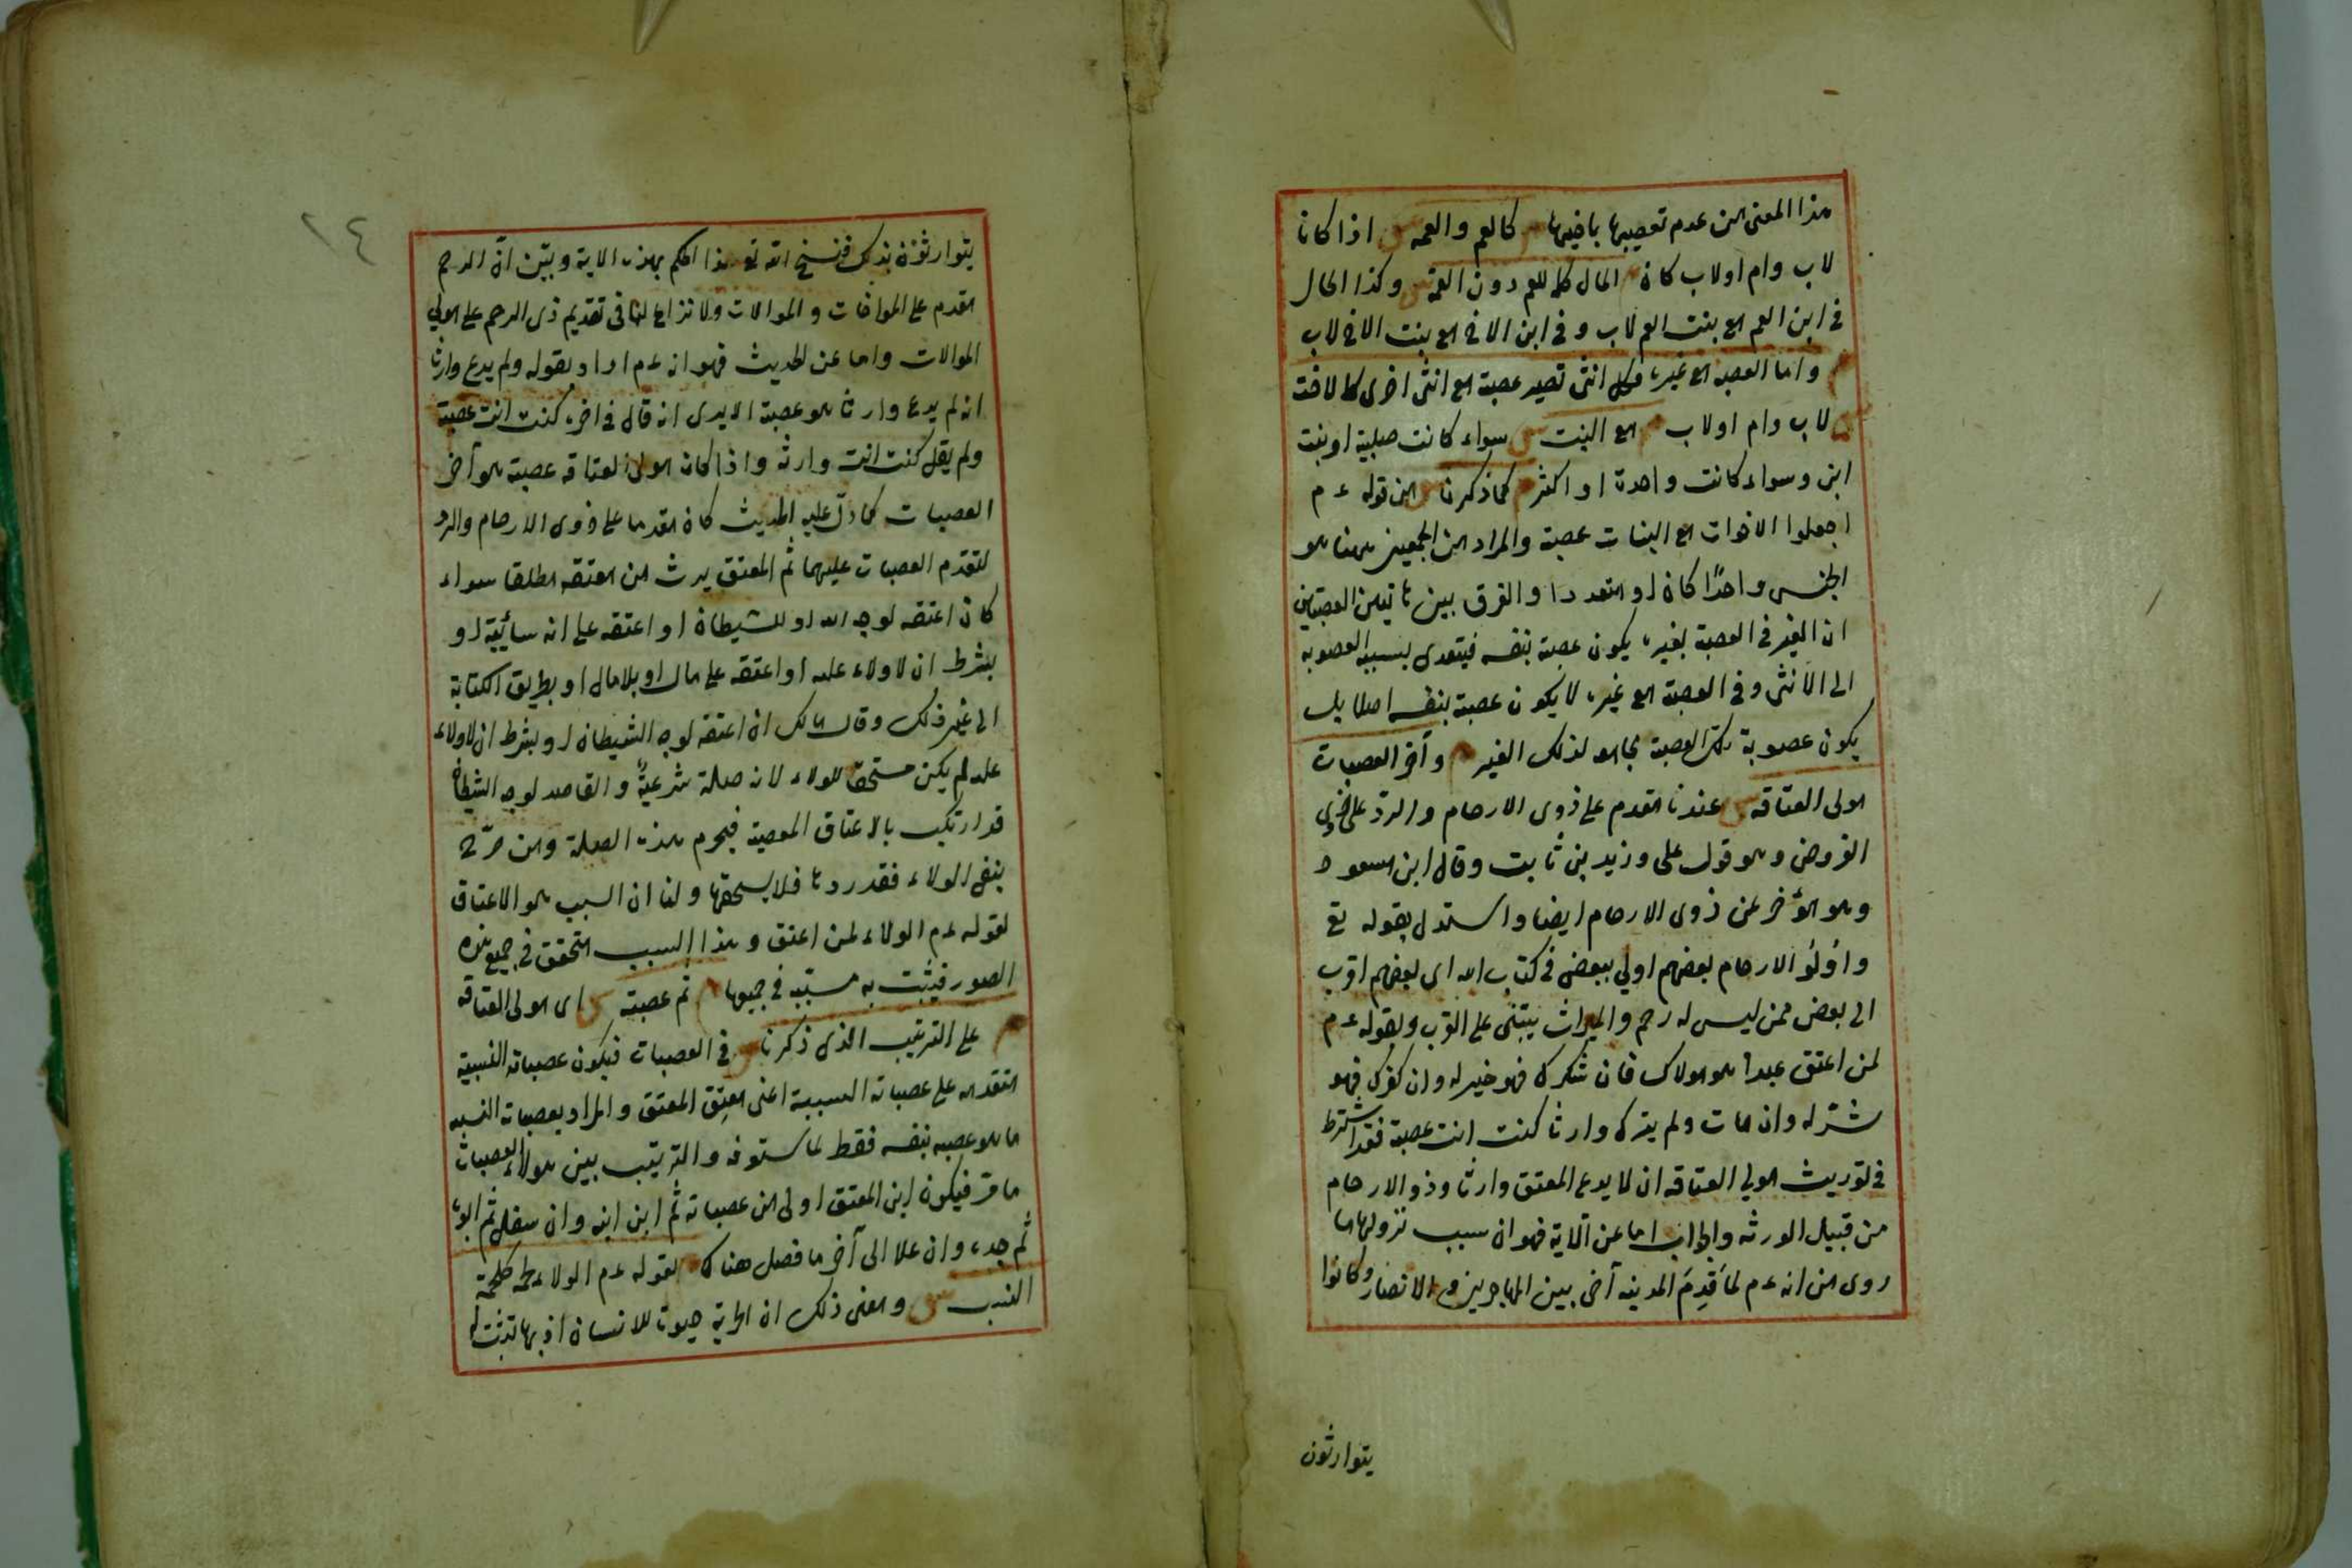 هذا المعنى من عدم تعصيبها باخيها م كالعم والعمة ش اذا كانا
لاب وام اولاب كان م المال كله للعم دون العمة ش وكذا الحال
فى ابن العم مع بنت العم لاب و فى ابن الاخ مع بنت الاخ لاب
م واما العصبة مع غيره فكل انثى تصير عصبة مع انثى اخرى كالاخت
ش لاب وام اولاب م مع البنت ش سواء كانت صلبية او بنت
ابن وسواء كانت واحدة او اكثر م كما ذكرنا ش من قوله ءم
اجعلوا الاخوات مع البنات عصبة والمراد من الجمعين ههنا هو
الجنس واحدًا كان او متعددا والفرق بين هاتين العصبتين
ان الغير فى العصبة بغيره يكون عصبة بنفسه فيتعدى بسببه العصوبة
الى الانثى وفى العصبة مع غيره لا يكون عصبة بنفسه اصلا بل
يكون عصوبة تلك العصبة مجامعه لذلك الغير م وآخر العصبات
مولى العتاقه ش عندنا مقدم على ذوى الارحام والرد على ذوى
الفروض وهو قول على وزيد بن ثابت وقال ابن مسعود
وهو مؤخر عن ذوى الارحام ايضا واستدل بقوله تع
واُولُو الارحام بعضهم اولى ببعض فى كتاب الله اى بعضهم اقرب
الى بعض ممن ليس له رحم والميراث يبتنى على القرب وبقوله ءم
لمن اعتق عبدا هو مولاك فان شكرك فهو خير له وان كفرك فهو
شر له وان مات ولم يترك وارثا كنت انت عصبة فقد اشترط
فى توريث مولى العتاقه ان لا يدع المعتق وارثا وذو الارحام
من قبيل الورثه والجواب اما عن الآية فهو ان سبب نزولها ما
روى من انه ءم لما قَدِمَ المدينه آخى بين المهاجرين والانصار وكانوا
يتوارثون
١٤
يتوارثون بذلك فنسخ الله تع هذا الحكم بهذه الاية وبيّن انّ الرحم
مقدم على المواخات و الموالات ولا نزاع لنا فى تقديم ذى الرحم على مولى
الموالات واما عن الحديث فهو انه ءم اراد بقوله ولم يدع وارثا
انه لم يدع وارثا هو عصبة الا يرى انه قال فى اخره كنت انت عصبة
ولم يقل كنت انت وارثه واذا كان مولى العتاقه عصبة هو آخر
العصبات كما دلّ عليه الحديث كان مقدما على ذوى الارحام والرد
لتقدم العصبات عليهما ثم المعتق يرث من معتقه مطلقا سواء
كان اعتقه لوجه الله او للشيطان او اعتقه على انه سائبة او
بشرط ان لا ولاء عليه او اعتقه على مال او بلا مال او بطريق الكتابة
الى غير ذلك وقال مالك ان اعتقه لوجه الشيطان او بشرط ان لا ولاء
عليه لم يكن مستحقا للولاء لانه صلة شرعيةً والقاصد لوجه الشيطان
قد ارتكب بالاعتاق المعصية فيحرم هذه الصلة ومن صرّح
بنفى الولاء فقد ردها فلا يستحقها ولنا ان السبب هو الاعتاق
لقوله ءم الولاء لمن اعتق وهذا السبب متحقق فى جميع هذه
الصور فيثبت به مسببه فى جميعها م ثم عصبته ش اى مولى العتاقه
م على الترتيب الذى ذكرنا ش فى العصبات فيكون عصباته النسبية
متقدمه على عصباته السببية اعنى معتِق المعتق والمراد بعصباته النسبيه
ما هو عصبه بنفسه فقط لما ستعرفه والترتيب بين هؤلاء العصبات
ما مرّ فيكون ابن المعتق اولى من عصباته ثم ابن ابنه وان سفل ثم ابوه
ثم جده وان علا الى آخر ما فصل هناك م لقوله ءم الولاء لحمة كلحمة
النسب ش ومعنى ذلك ان الحرية حيوة للانسان اذ بها تثبت له